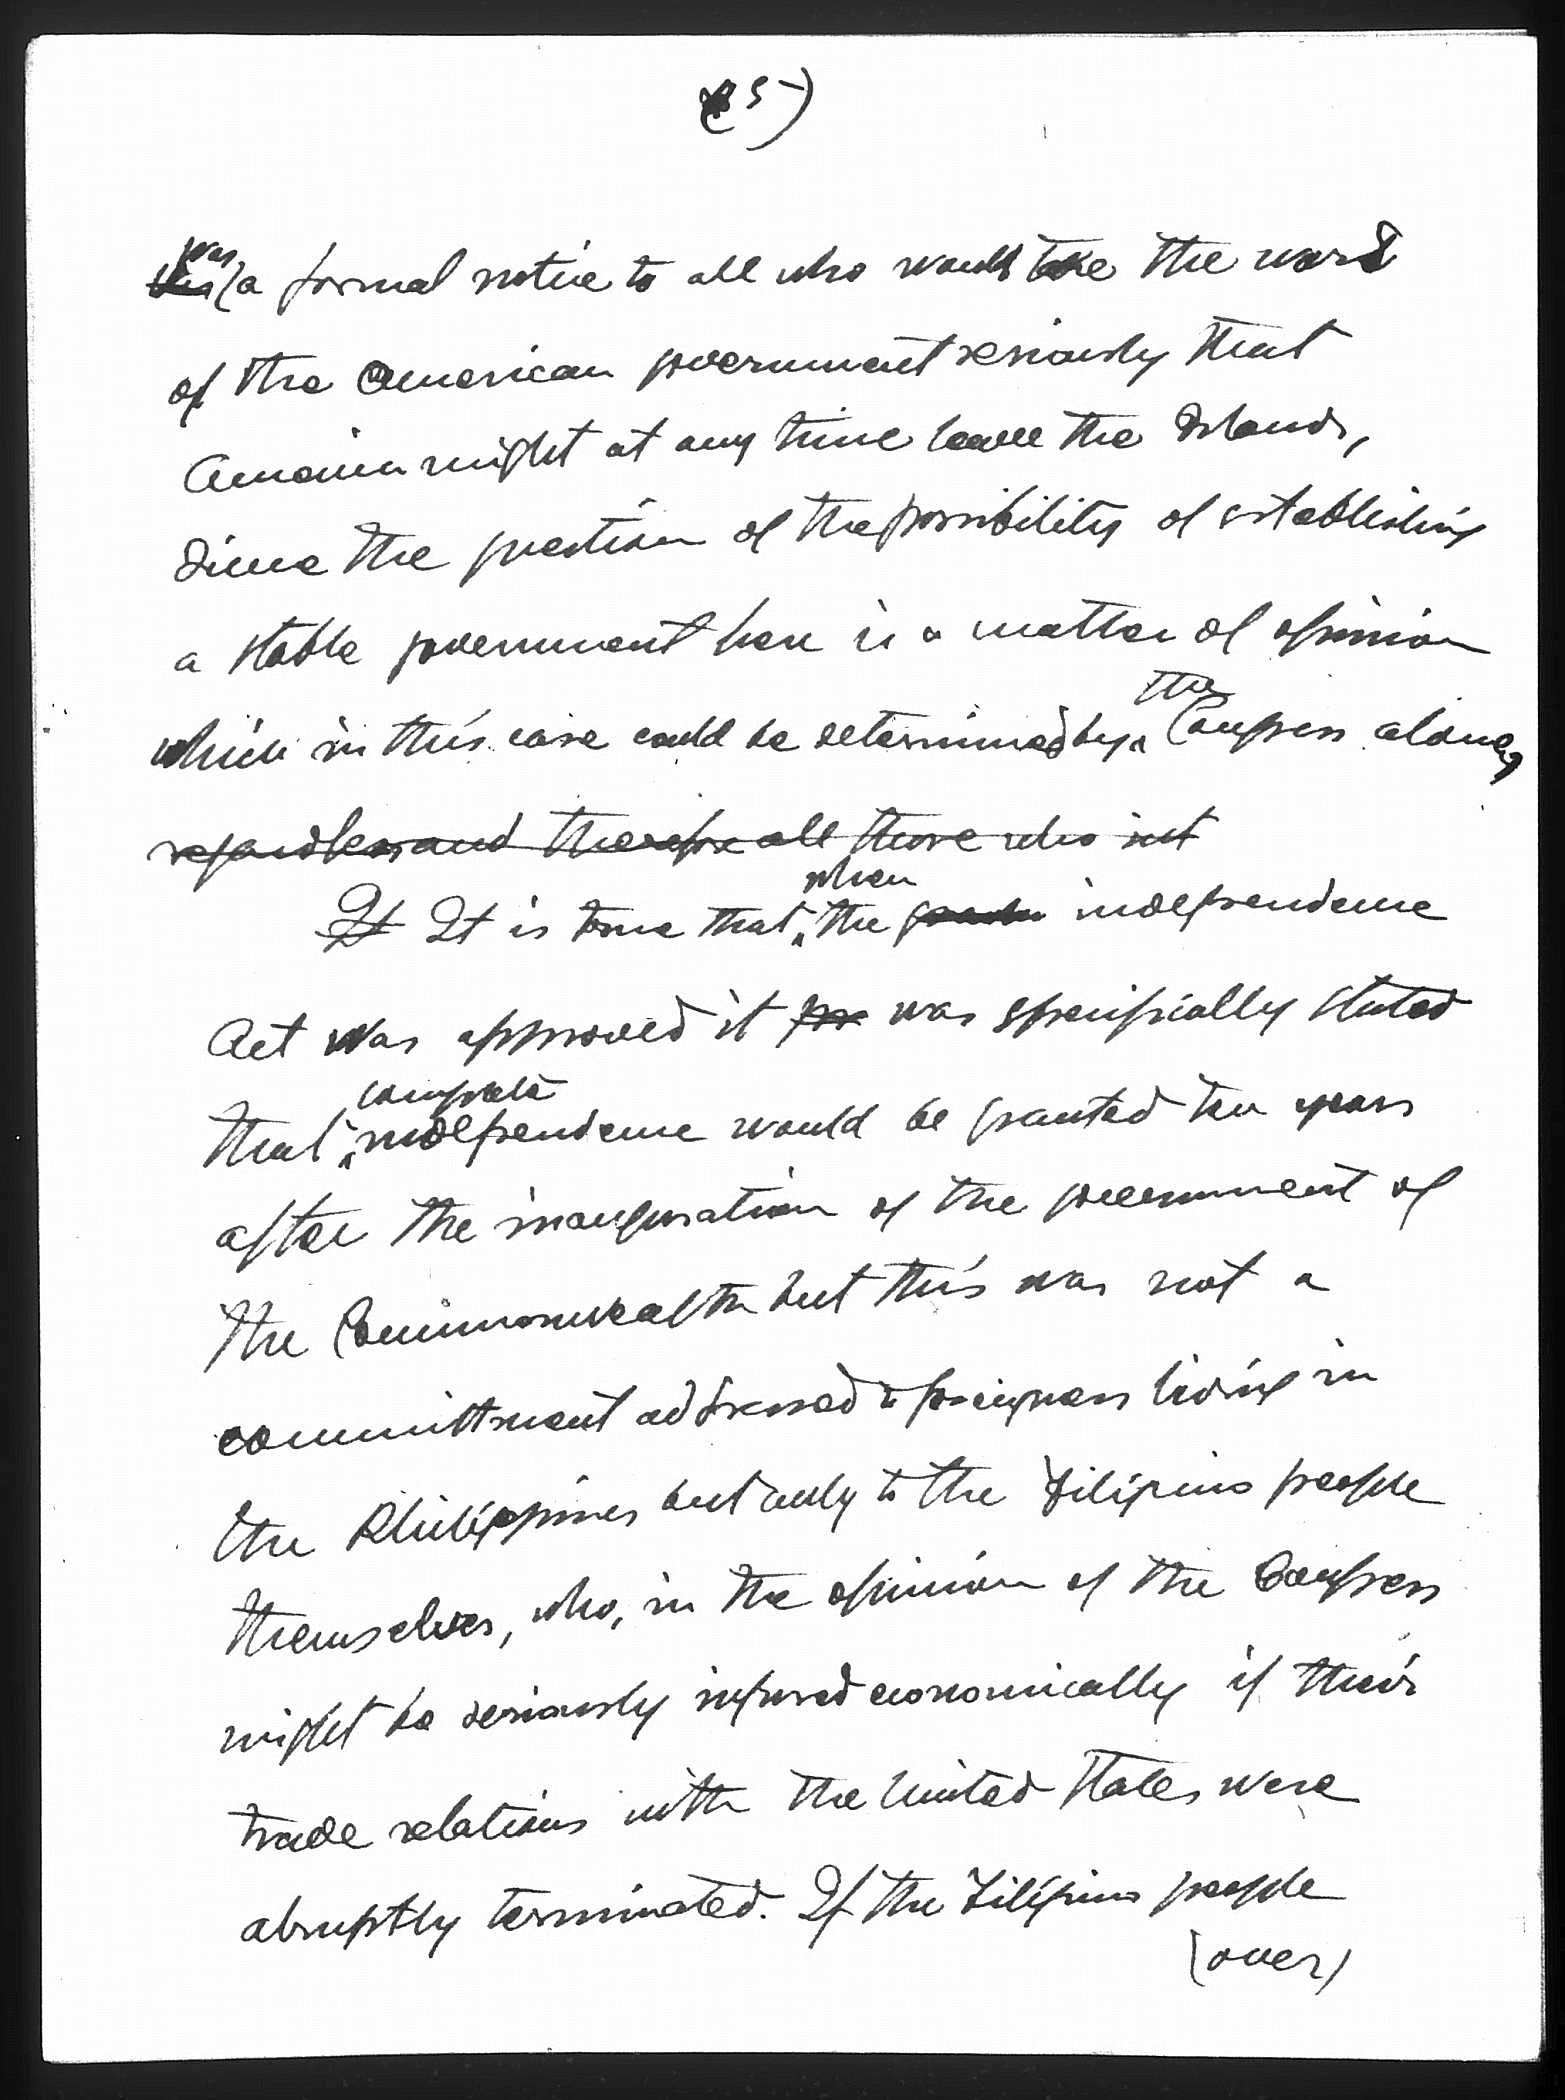 (5)
was
a formal notice to all who would take the word
of the American government seriously that
America might at any time leave the Islands,
since the question of the possibility of establishing
a stable government here is a matter of opinion
the
which in this case could be determined by Congress alone,
regardless and therefore all those who inst
when
It It is true that the independence
Act was approved it was specifically stated
complete
that independence would be granted ten years
after the inauguration of the government of
the Commonwealth but this was not a
committment addressed to foreigners living in
the Philippines but only to the Filipino people
themselves, who, in the opinion of the Congress
might be seriously injured economically if their
trade relations with the United States were
abruptly terminated. If the Filipino people
(over)